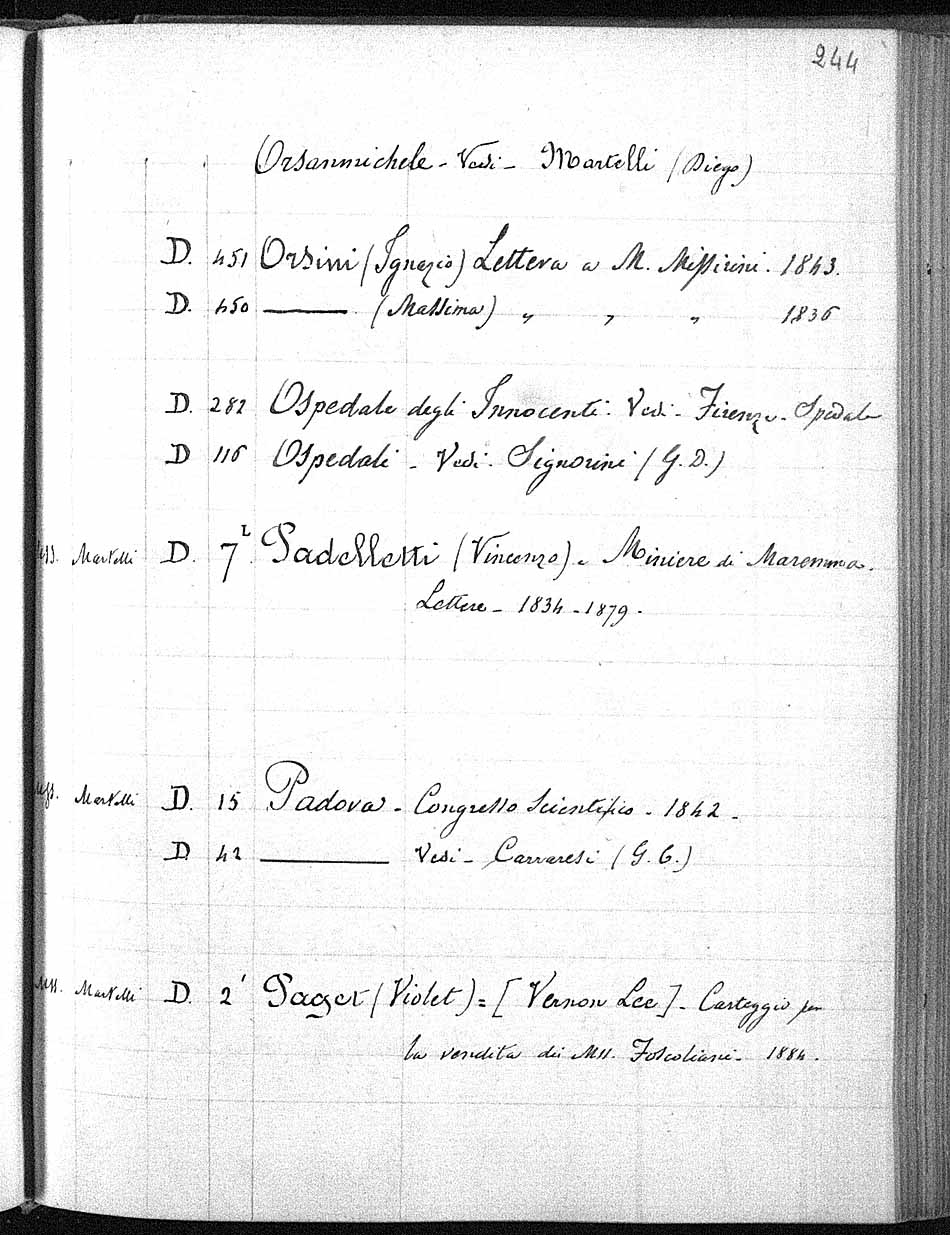 244
Orsanmichele - Vedi - Martelli (Diego)
D. 451 Orsini (Ignazio) Lettera a M. Missirini. 1843.
D. 450 ——— (Massimo) „ „ „ 1836
D. 282 Ospedale degli Innocenti. Vedi - Firenze - Spedale
D 116 Ospedali - Vedi - Signorini (G. D.)
Mss. Martelli D. 7 L Padelletti (Vincenzo) e Miniere di Maremma.
Lettere - 1834 - 1879.
Mss. Martelli D. 15 Padova - Congresso Scientifico - 1842 -
D 42 ——— Vedi - Carraresi (G. C.)
Mss. Martelli D. 2' Paget (Violet) = [Vernon Lee] - Carteggio per
la vendita dei Mss. Foscoliani - 1884.